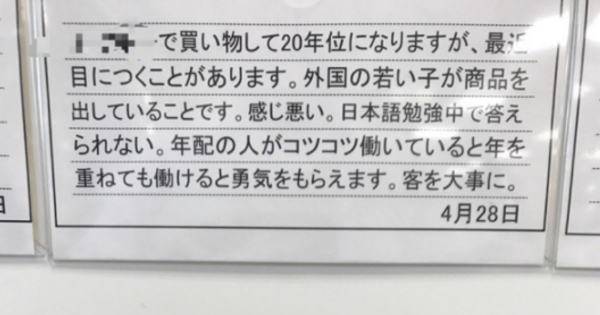 で買い物して20年位になりますが、最近
目につくことがあります。外国の若い子が商品を
出していることです。感じ悪い。日本語勉強中で答え
られない。年配の人がコツコツ働いていると年を
重ねても働けると勇気をもらえます。客を大事に。
4月28日
日